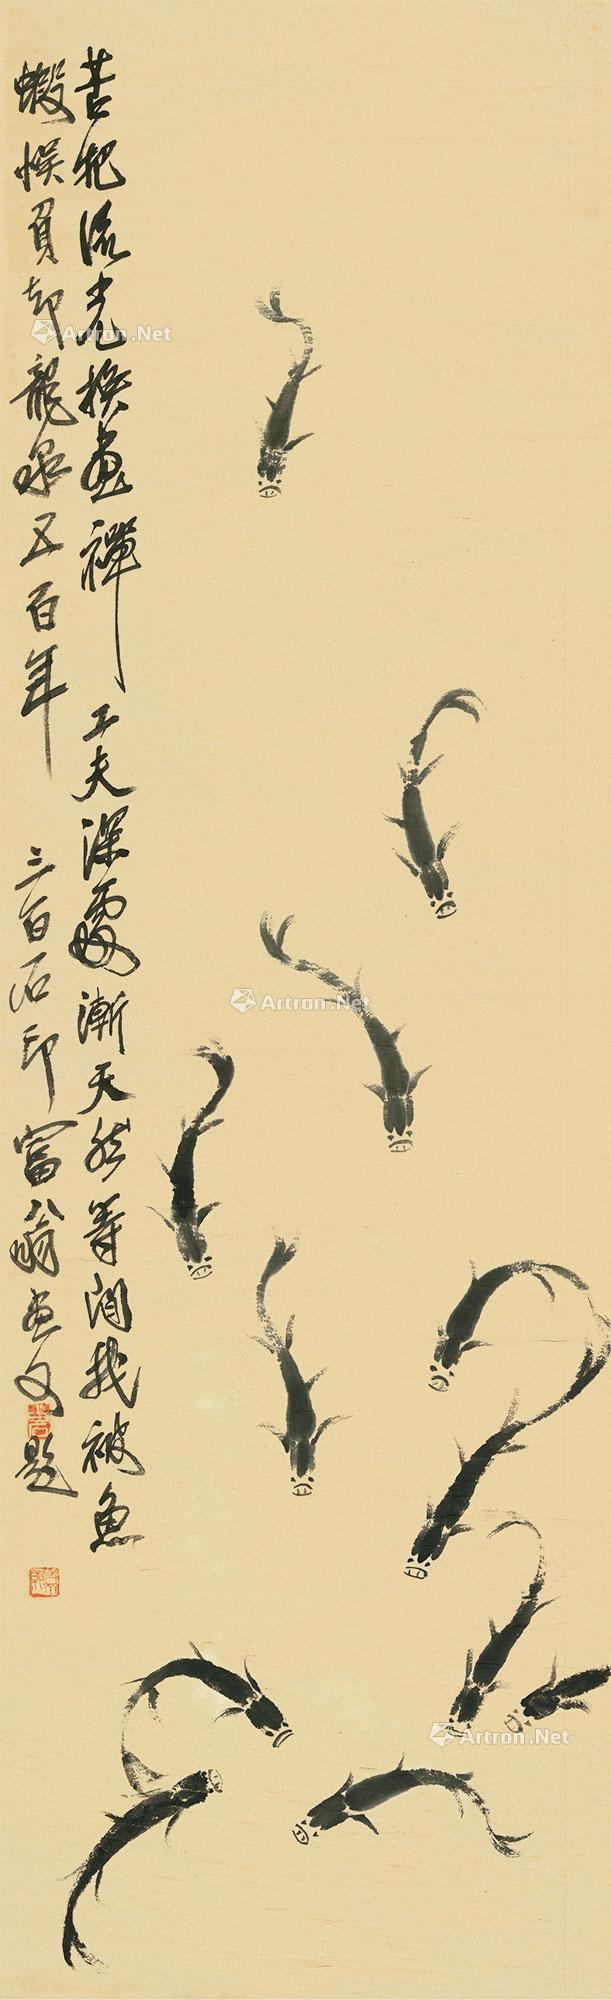 苦把流光換畫禪 工夫深處漸天然 等閒我被魚
蝦悞負却龍泉五百年 三百石印富翁畫又題
Artron.Net
Artron.Net
Artron.Net
Artron.Net